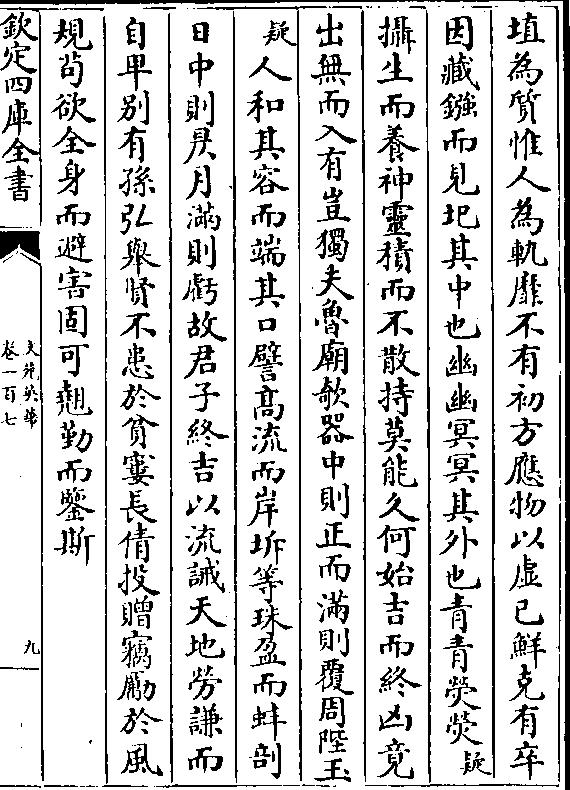 埴為質惟人為軌靡不有初方應物以虛已鮮克有卒
因藏鏹而見圯其中也幽幽冥冥其外也青青熒熒疑
攝生而養神靈積而不散持莫能久何始吉而終凶竟
出無而入有豈獨夫魯廟欹器中則正而滿則覆周陛玉
疑人和其容而端其口譬高流而岸坼等珠盈而蚌剖
日中則昃月滿則虧故君子終吉以流誡天地勞謙而
自卑別有孫弘舉賢不患於貧窶長倩投贈竊勵於風
規茍欲全身而避害固可翹勤而鑒斯
欽定四庫全書
文苑英華
卷一百七
九